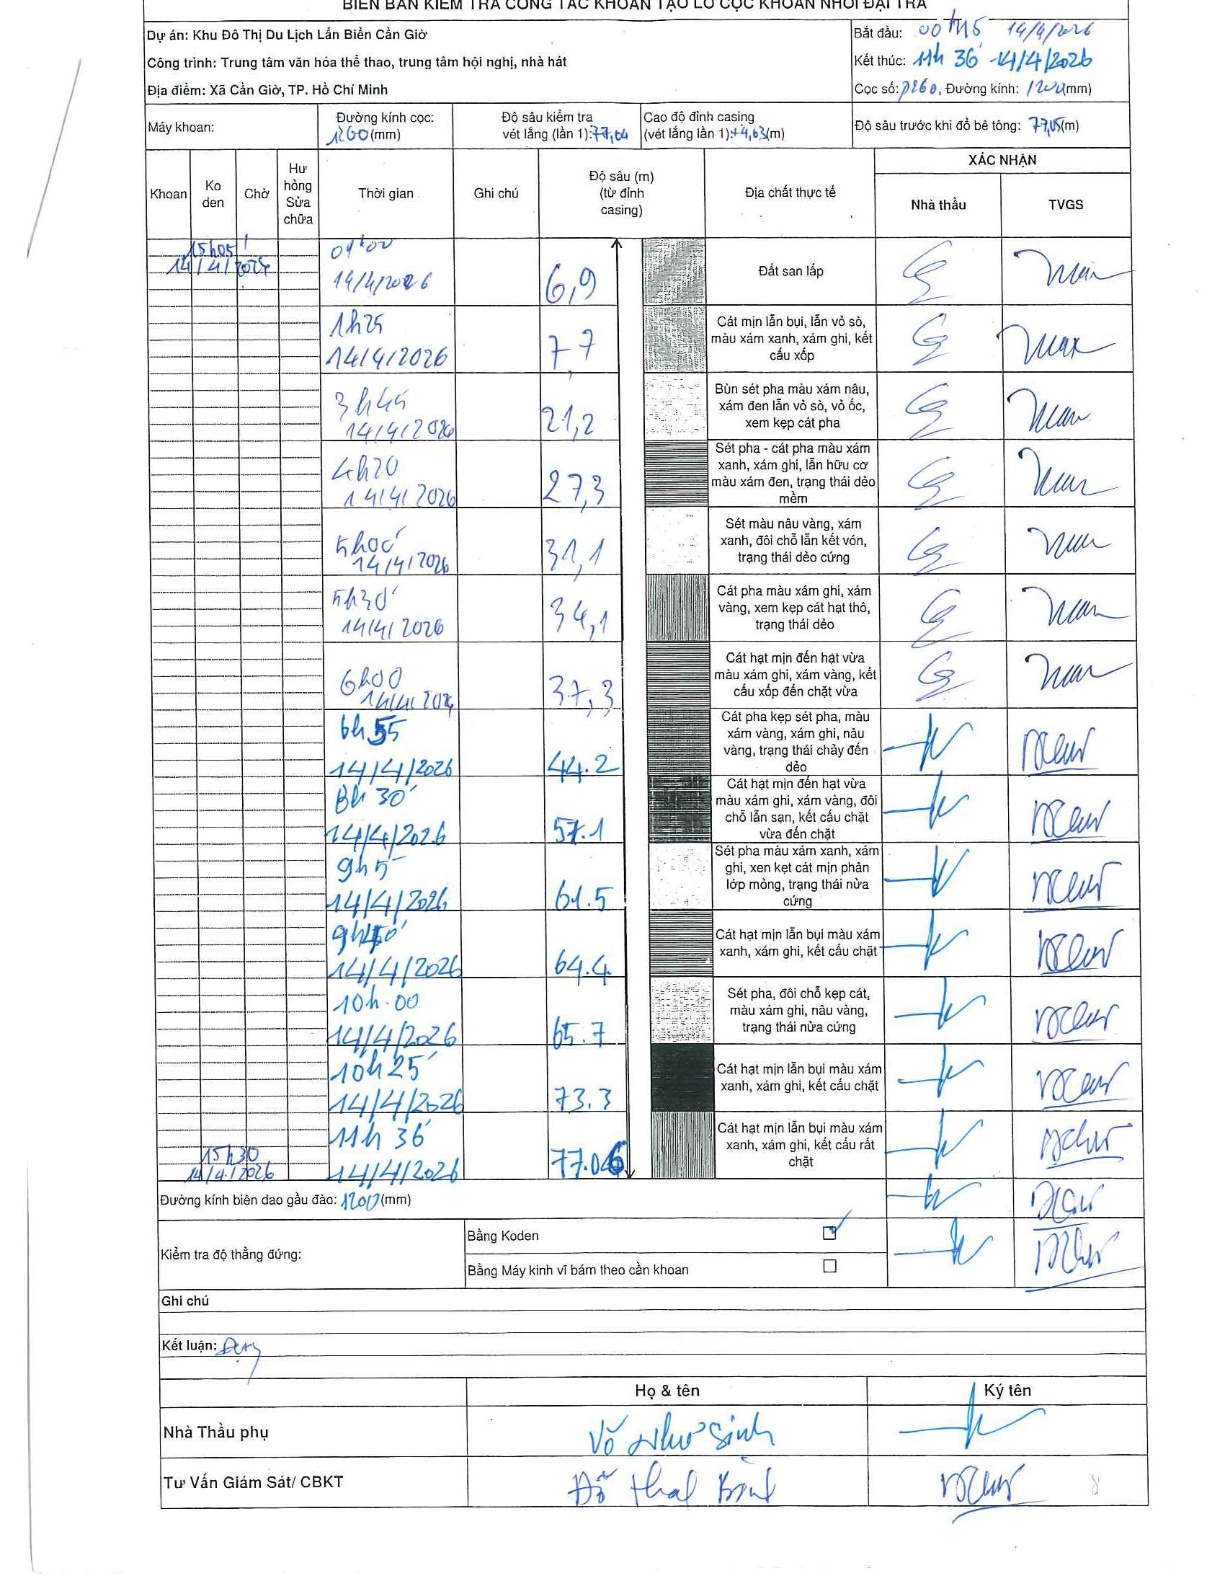 BIÊN BẢN KIỂM TRA CÔNG TÁC KHOAN TẠO LỖ CỌC KHOAN NHỒI ĐẠI TRÀ
Dự án: Khu Đô Thị Du Lịch Lấn Biển Cần Giờ
Bắt đầu: 00h15 14/4/2026
Công trình: Trung tâm văn hóa thể thao, trung tâm hội nghị, nhà hát
Kết thúc: 11h 36 - 14/4/2026
Địa điểm: Xã Cần Giờ, TP. Hồ Chí Minh
Cọc số: P260, Đường kính: 1200(mm)
Máy khoan:
Đường kính cọc: 1200(mm)
Độ sâu kiểm tra vét lắng (lần 1): 77,04
Cao độ đỉnh casing (vét lắng lần 1): +4,63(m)
Độ sâu trước khi đổ bê tông: 77,05(m)
Khoan Ko den Chờ Hư hỏng Sửa chữa Thời gian Ghi chú Độ sâu (m) (từ đỉnh casing) Địa chất thực tế XÁC NHẬN
Nhà thầu TVGS
15h05'
14/4/2026
01h00 14/4/2026 6,9 Đất san lấp
1h25 14/4/2026 7,7 Cát mịn lẫn bụi, lẫn vỏ sò, màu xám xanh, xám ghi, kết cấu xốp
3h45 14/4/2026 21,2 Bùn sét pha màu xám nâu, xám đen lẫn vỏ sò, vỏ ốc, xem kẹp cát pha
4h20 14/4/2026 27,3 Sét pha - cát pha màu xám xanh, xám ghi, lẫn hữu cơ màu xám đen, trạng thái dẻo mềm
5h00' 14/4/2026 31,1 Sét màu nâu vàng, xám xanh, đôi chỗ lẫn kết vón, trạng thái dẻo cứng
5h30' 14/4/2026 34,1 Cát pha màu xám ghi, xám vàng, xem kẹp cát hạt thô, trạng thái dẻo
6h00 14/4/2026 37,3 Cát hạt mịn đến hạt vừa màu xám ghi, xám vàng, kết cấu xốp đến chặt vừa
6h 55 14/4/2026 44.2 Cát pha kẹp sét pha, màu xám vàng, xám ghi, nâu vàng, trạng thái chảy đến dẻo
8h 30' 14/4/2026 57.1 Cát hạt mịn đến hạt vừa màu xám ghi, xám vàng, đôi chỗ lẫn sạn, kết cấu chặt vừa đến chặt
9h 5' 14/4/2026 61.5 Sét pha màu xám xanh, xám ghi, xen kẹt cát mịn phân lớp mỏng, trạng thái nửa cứng
14/4/2026 64.4 Cát hạt mịn lẫn bụi màu xám xanh, xám ghi, kết cấu chặt
10h.00 14/4/2026 65.7 Sét pha, đôi chỗ kẹp cát, màu xám ghi, nâu vàng, trạng thái nửa cứng
10h 25' 14/4/2026 73.3 Cát hạt mịn lẫn bụi màu xám xanh, xám ghi, kết cấu chặt
11h 36' 14/4/2026 77.06 Cát hạt mịn lẫn bụi màu xám xanh, xám ghi, kết cấu rất chặt
15h30
14/4/2026
Đường kính biên dao gầu đào: 1200(mm)
Kiểm tra độ thẳng đứng:
Bằng Koden
Bằng Máy kinh vĩ bám theo cần khoan
Ghi chú
Kết luận: Đạt
Họ & tên Ký tên
Nhà Thầu phụ Võ Như Sinh
Tư Vấn Giám Sát/ CBKT Đỗ Thái Bình